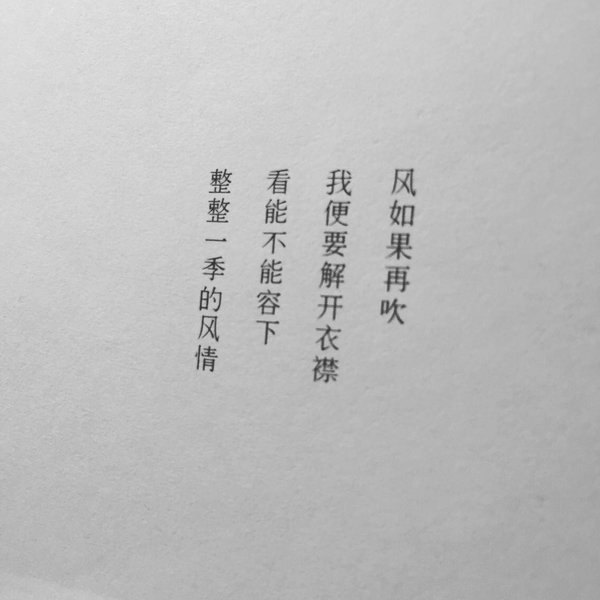 风如果再吹
我便要解开衣襟
看能不能容下
整整一季的风情